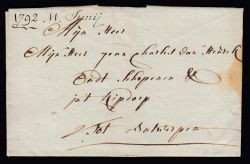 1792 11 Junij
Mijn Heer
Mijn Heer Jean Charles Van
Oudt Schepenen &
jnt Kipdorp
Tot Antwerpen